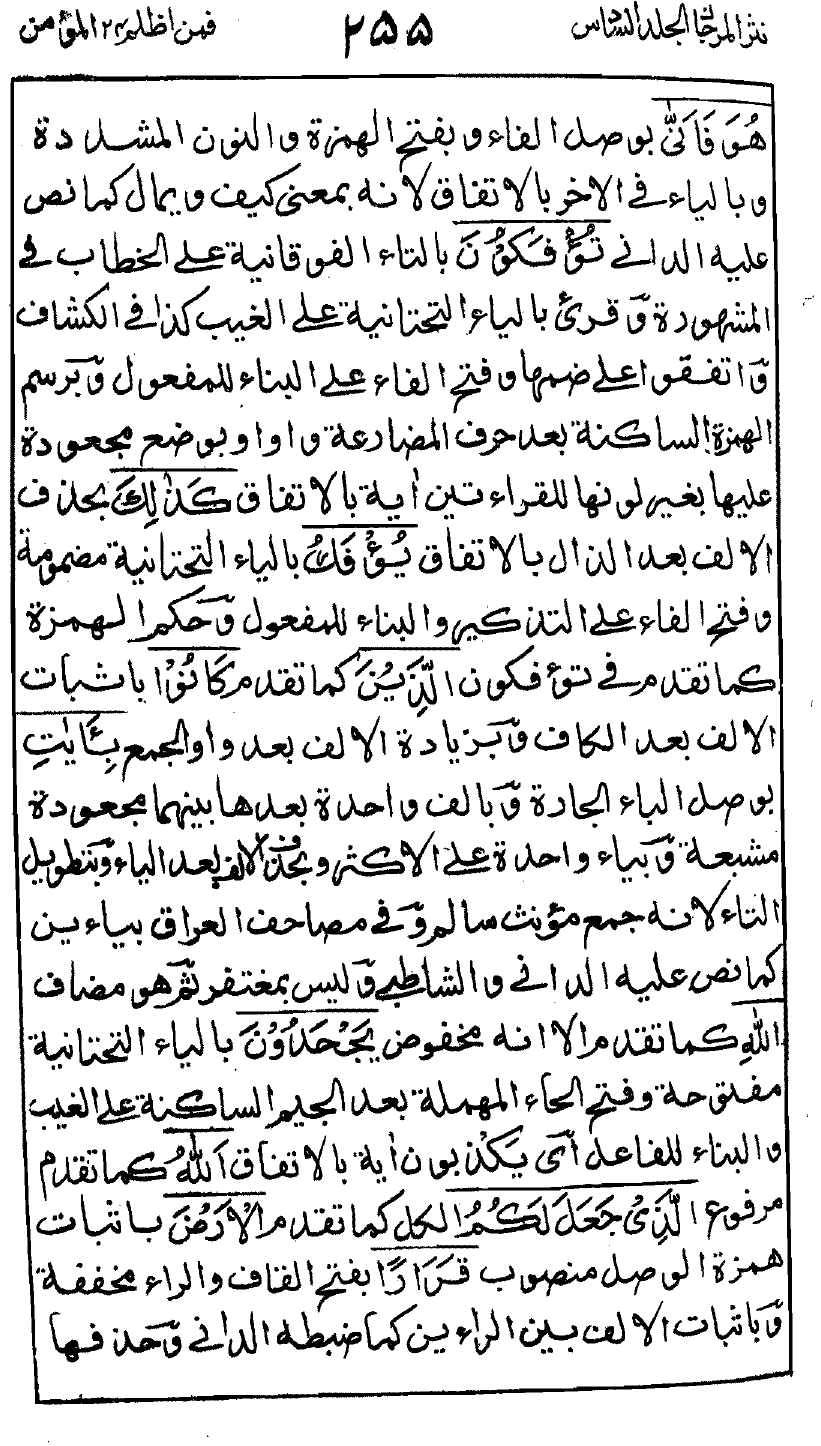 نثر المرجان الجلد السادس ٢٥٥ فمن اظلم ٢٤ المؤمن
هُوَ فَاَنّٰى بوصل الفاء و بفتح الهمزة والنون المشددة
و بالياء في الاخر بالاتفاق لانه بمعنى كيف ويمال كما نص
عليه الداني تُؤْفَكُوْنَ بالتاء الفوقانية على الخطاب في
المشهودة وّقرئ بالياء التحتانية على الغيب كذا في الكشاف
وّاتفقوا على ضمها وفتح الفاء على البناء للمفعول وّبرسم
الهمزة الساكنة بعد حرف المضارعة واوا وبوضع مجعودة
عليها بغير لونها للقراءتين اٰية بالاتفاق كَذٰلِكَ بحذف
الالف بعد الذال بالاتفاق يُؤْفَكُ بالياء التحتانية مضمومة
وفتح الفاء على التذكير والبناء للمفعول وّحكم الهمزة
كما تقدم في تؤفكون الَّذِيْنَ كما تقدم كَانُوْا باثبات
الالف بعد الكاف وّبزيادة الالف بعد واو الجمع بِئَايٰتِ
بوصل الباء الجارة وّبالف واحدة بعدها بينهما مجعودة
مشبعة وّبياء واحدة على الاكثر و بحذف الالف بعد الياء وّبتطويل
التاء لانه جمع مؤنث سالم وّفي مصاحف العراق بياءين
كما نص عليه الداني والشاطبي وّليس بمغتفر ثمّ هو مضاف
اللّٰهِ كما تقدم الا انه مخفوض يَجْحَدُوْنَ بالياء التحتانية
مفتوحة وفتح الحاء المهملة بعد الجيم الساكنة على الغيب
والبناء للفاعل اَى يكذبون اٰية بالاتفاق اَللّٰهُ كما تقدم
مرفوع الَّذِىْ جَعَلَ لَكُمُ الكل كما تقدم الْاَرْضَ باثبات
همزة الوصل منصوب قَرَارًا بفتح القاف والراء مخففة
وّباثبات الالف بين الراءين كما ضبطه الداني وّحذفها